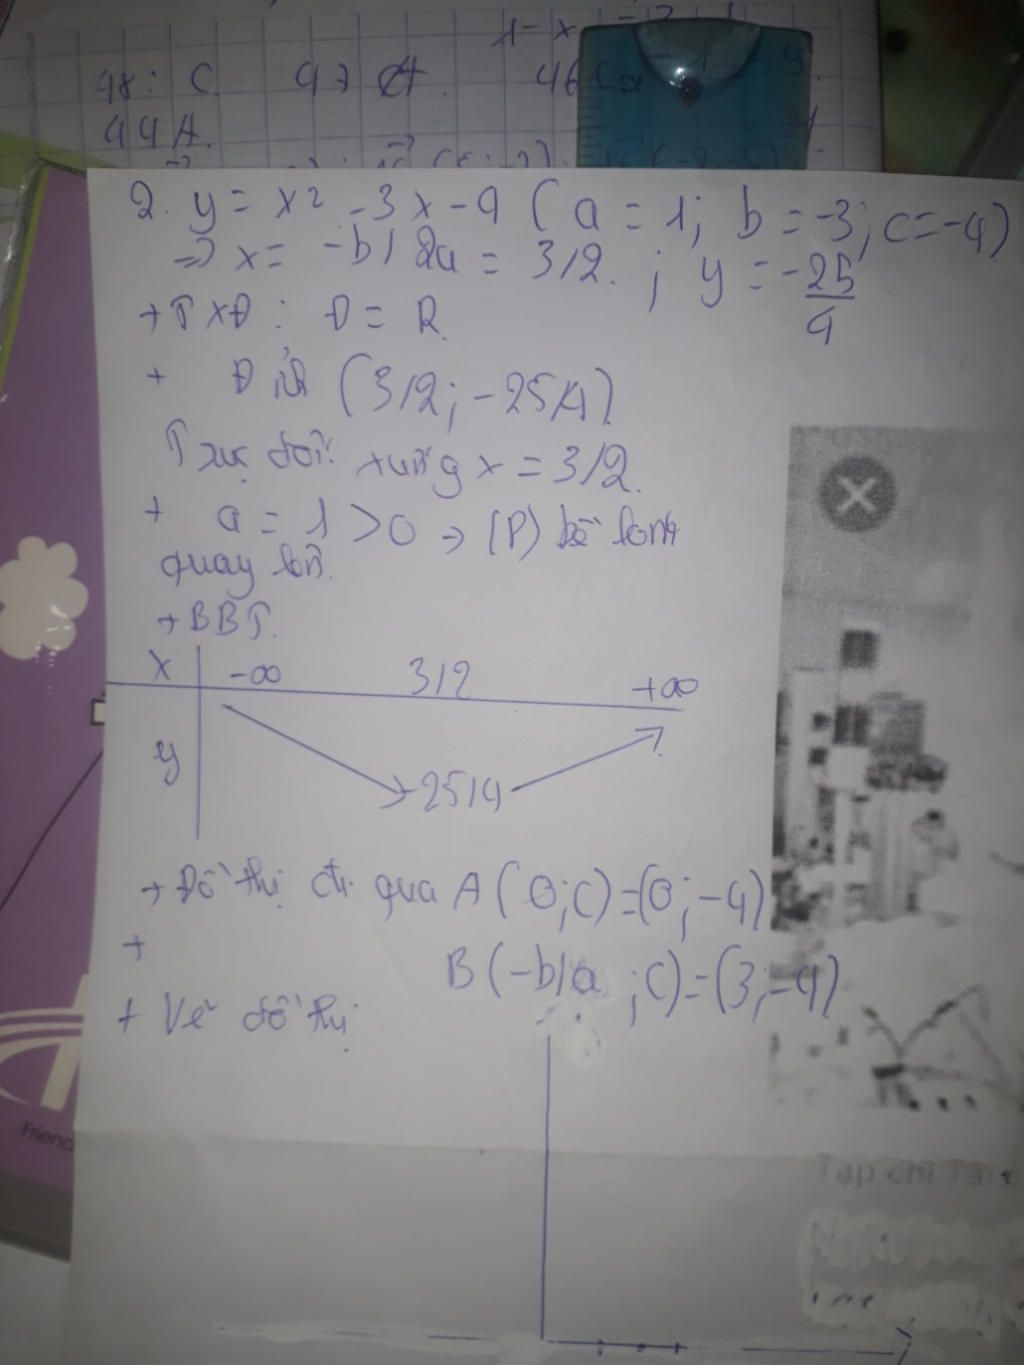 1-x
48: C 47 A 46 C
44A.
2. y = x² - 3x - 4 ( a = 1; b = -3; c = -4)
=> x = -b/2a = 3/2. ; y = -25/4
+ TXĐ : Đ = R
+ Đỉnh (3/2; -25/4)
Trục đối xứng x = 3/2.
+ a = 1 > 0 → (P) bề lõm
quay lên.
+ BBT.
x -∞ 3/2 +∞
y -25/4
+ Đồ thị đi qua A ( 0; C) = (0; -4)
+ B (-b/a ; C) = (3; -4)
+ Vẽ đồ thị
Friend
Tạp chí